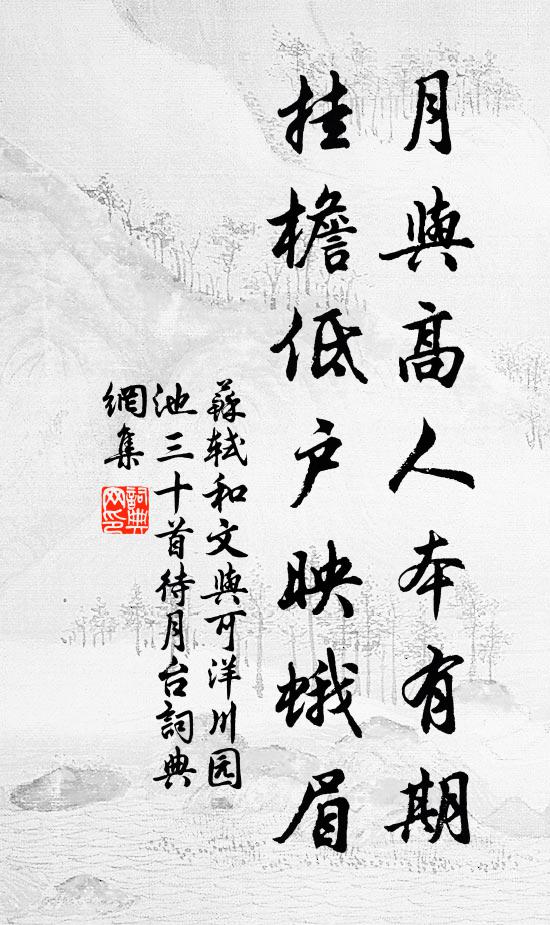 月與高人本有期
挂檐低户映蛾眉
蘇軾和文與可洋川园
池三十首待月台詞典
網集
詞典
网印